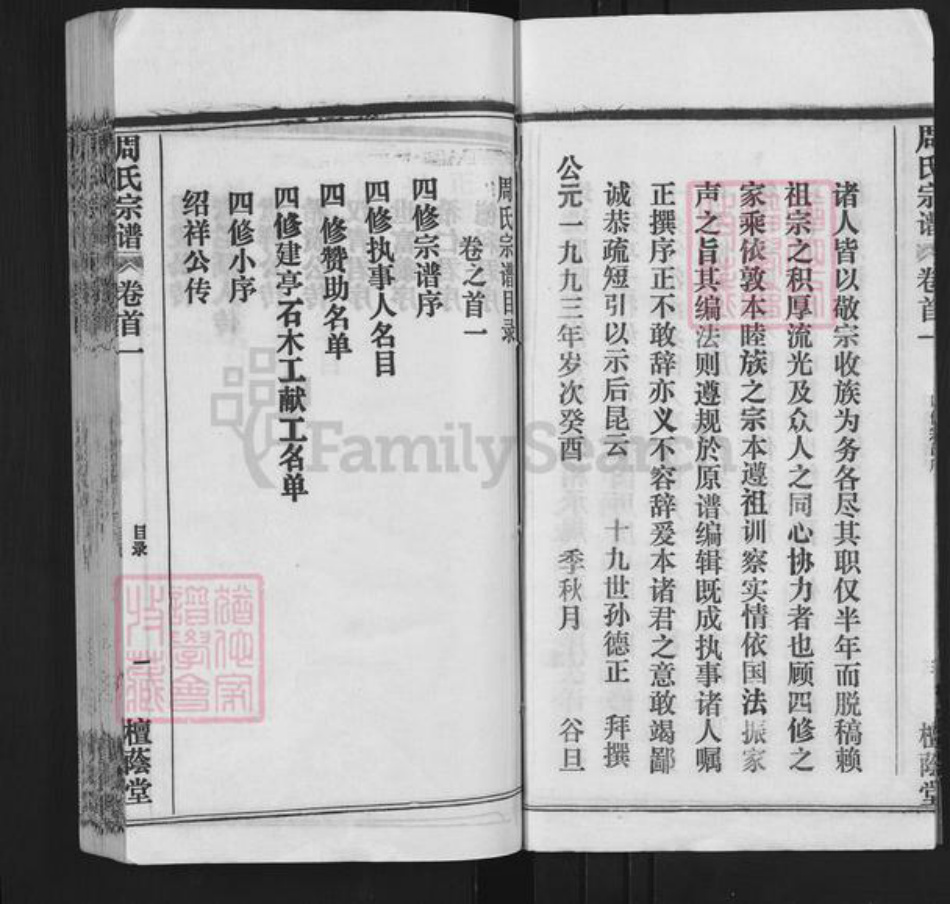 周氏宗谱
卷首一
檀蔭堂
诸人皆以敬宗收族为务各尽其职仅半年而脱稿赖
祖宗之积厚流光及众人之同心协力者也顾四修之
家乘依敦本睦族之宗本遵祖训察实情依国法振家
声之旨其编法则遵规於原谱编辑既成执事诸人嘱
正撰序正不敢辞亦义不容辞爰本诸君之意敢竭鄙
诚恭疏短引以示后昆云 十九世孙德正 拜撰
公元一九九三年岁次癸酉 季秋月 谷旦
周氏宗谱目录
卷之首一
四修宗谱序
四修执事人名目
四修赞助名单
四修建亭石木工献工名单
四修小序
绍祥公传
周氏宗谱
卷首一
目录
一
檀蔭堂
FamilySearch